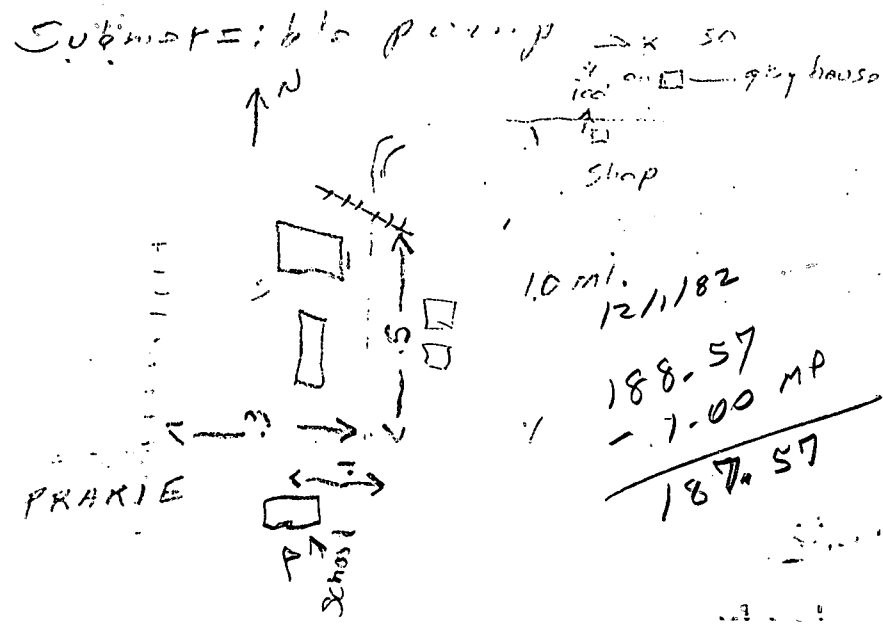 Submersible pump
N
grey house
Shop
1.0 mi.
12/1/82
188.57
- 1.00 MP
187.57
.5
.3
.1
PRARIE
School